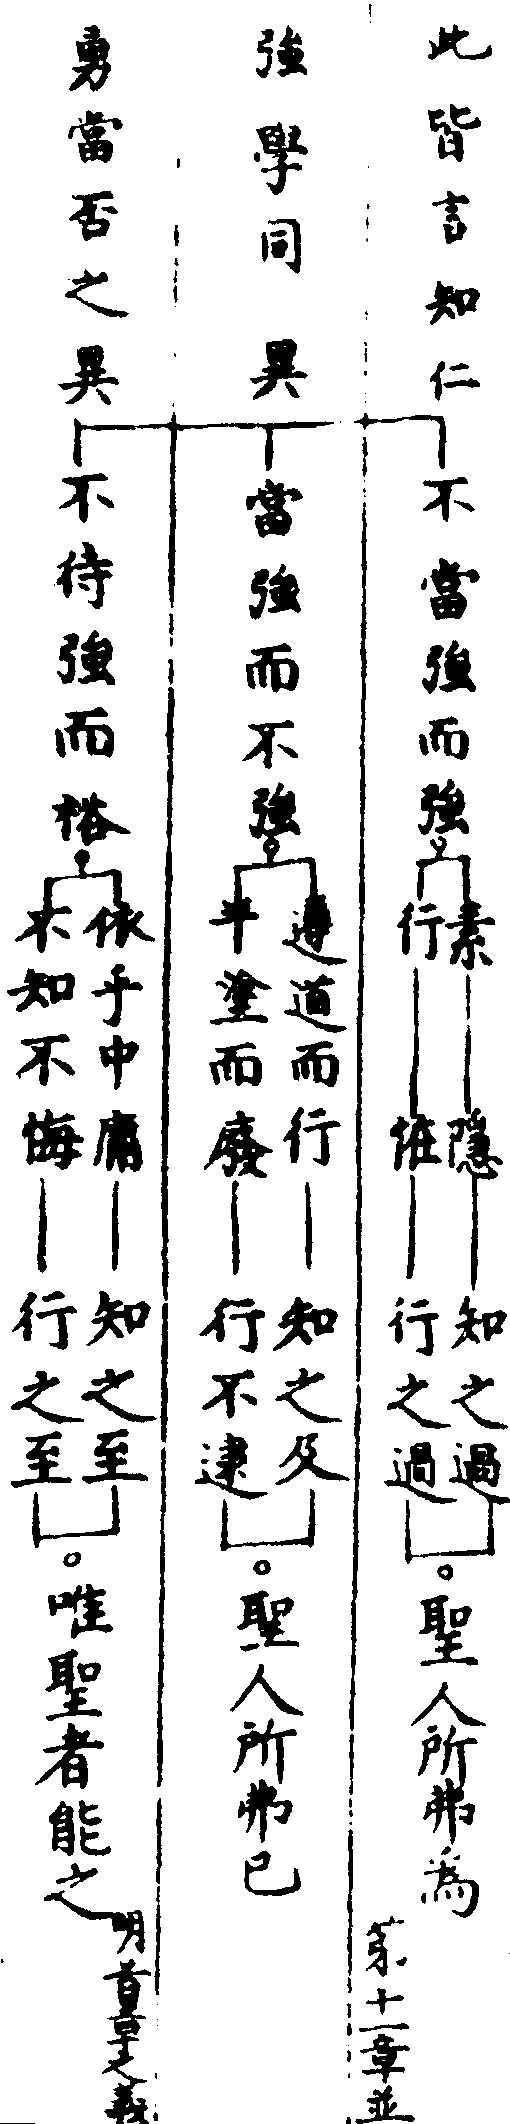 此皆言知仁
不當強而強
素隱知之過
行恠行之過
聖人所弗為
第十一章並
強學同異
當強而不強
遵道而行知之及
半塗而廢行不逮
聖人所弗已
勇當否之異
不待強而裕
依乎中庸知之至
不知不悔行之至
唯聖者能之
明首章之義